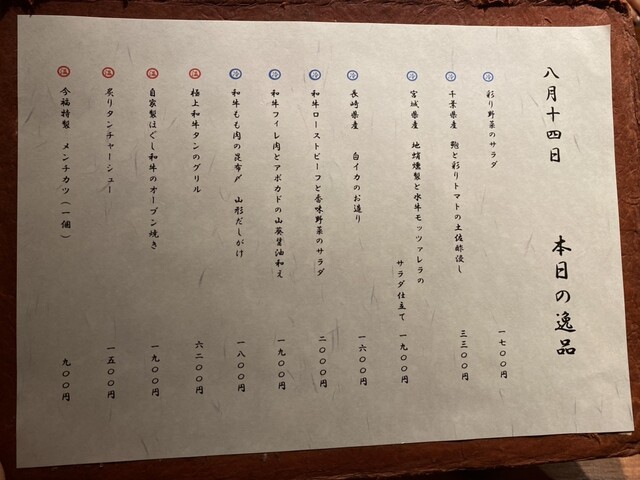 八月十四日 本日の逸品
冷 彩り野菜のサラダ 一七〇〇円
冷 千葉県産 鮑と彩りトマトの土佐酢浸し 三三〇〇円
冷 宮城県産 地蛸燻製と水牛モッツァレラの
サラダ仕立て 一九〇〇円
冷 長崎県産 白イカのお造り 一六〇〇円
冷 和牛ローストビーフと香味野菜のサラダ 二〇〇〇円
冷 和牛フィレ肉とアボカドの山葵醤油和え 一九〇〇円
冷 和牛もも肉の昆布〆 山形だしがけ 一八〇〇円
温 極上和牛タンのグリル 六二〇〇円
温 自家製ほぐし和牛のオーブン焼き 一九〇〇円
温 炙りタンチャーシュー 一五〇〇円
温 今福特製 メンチカツ（一個） 九〇〇円